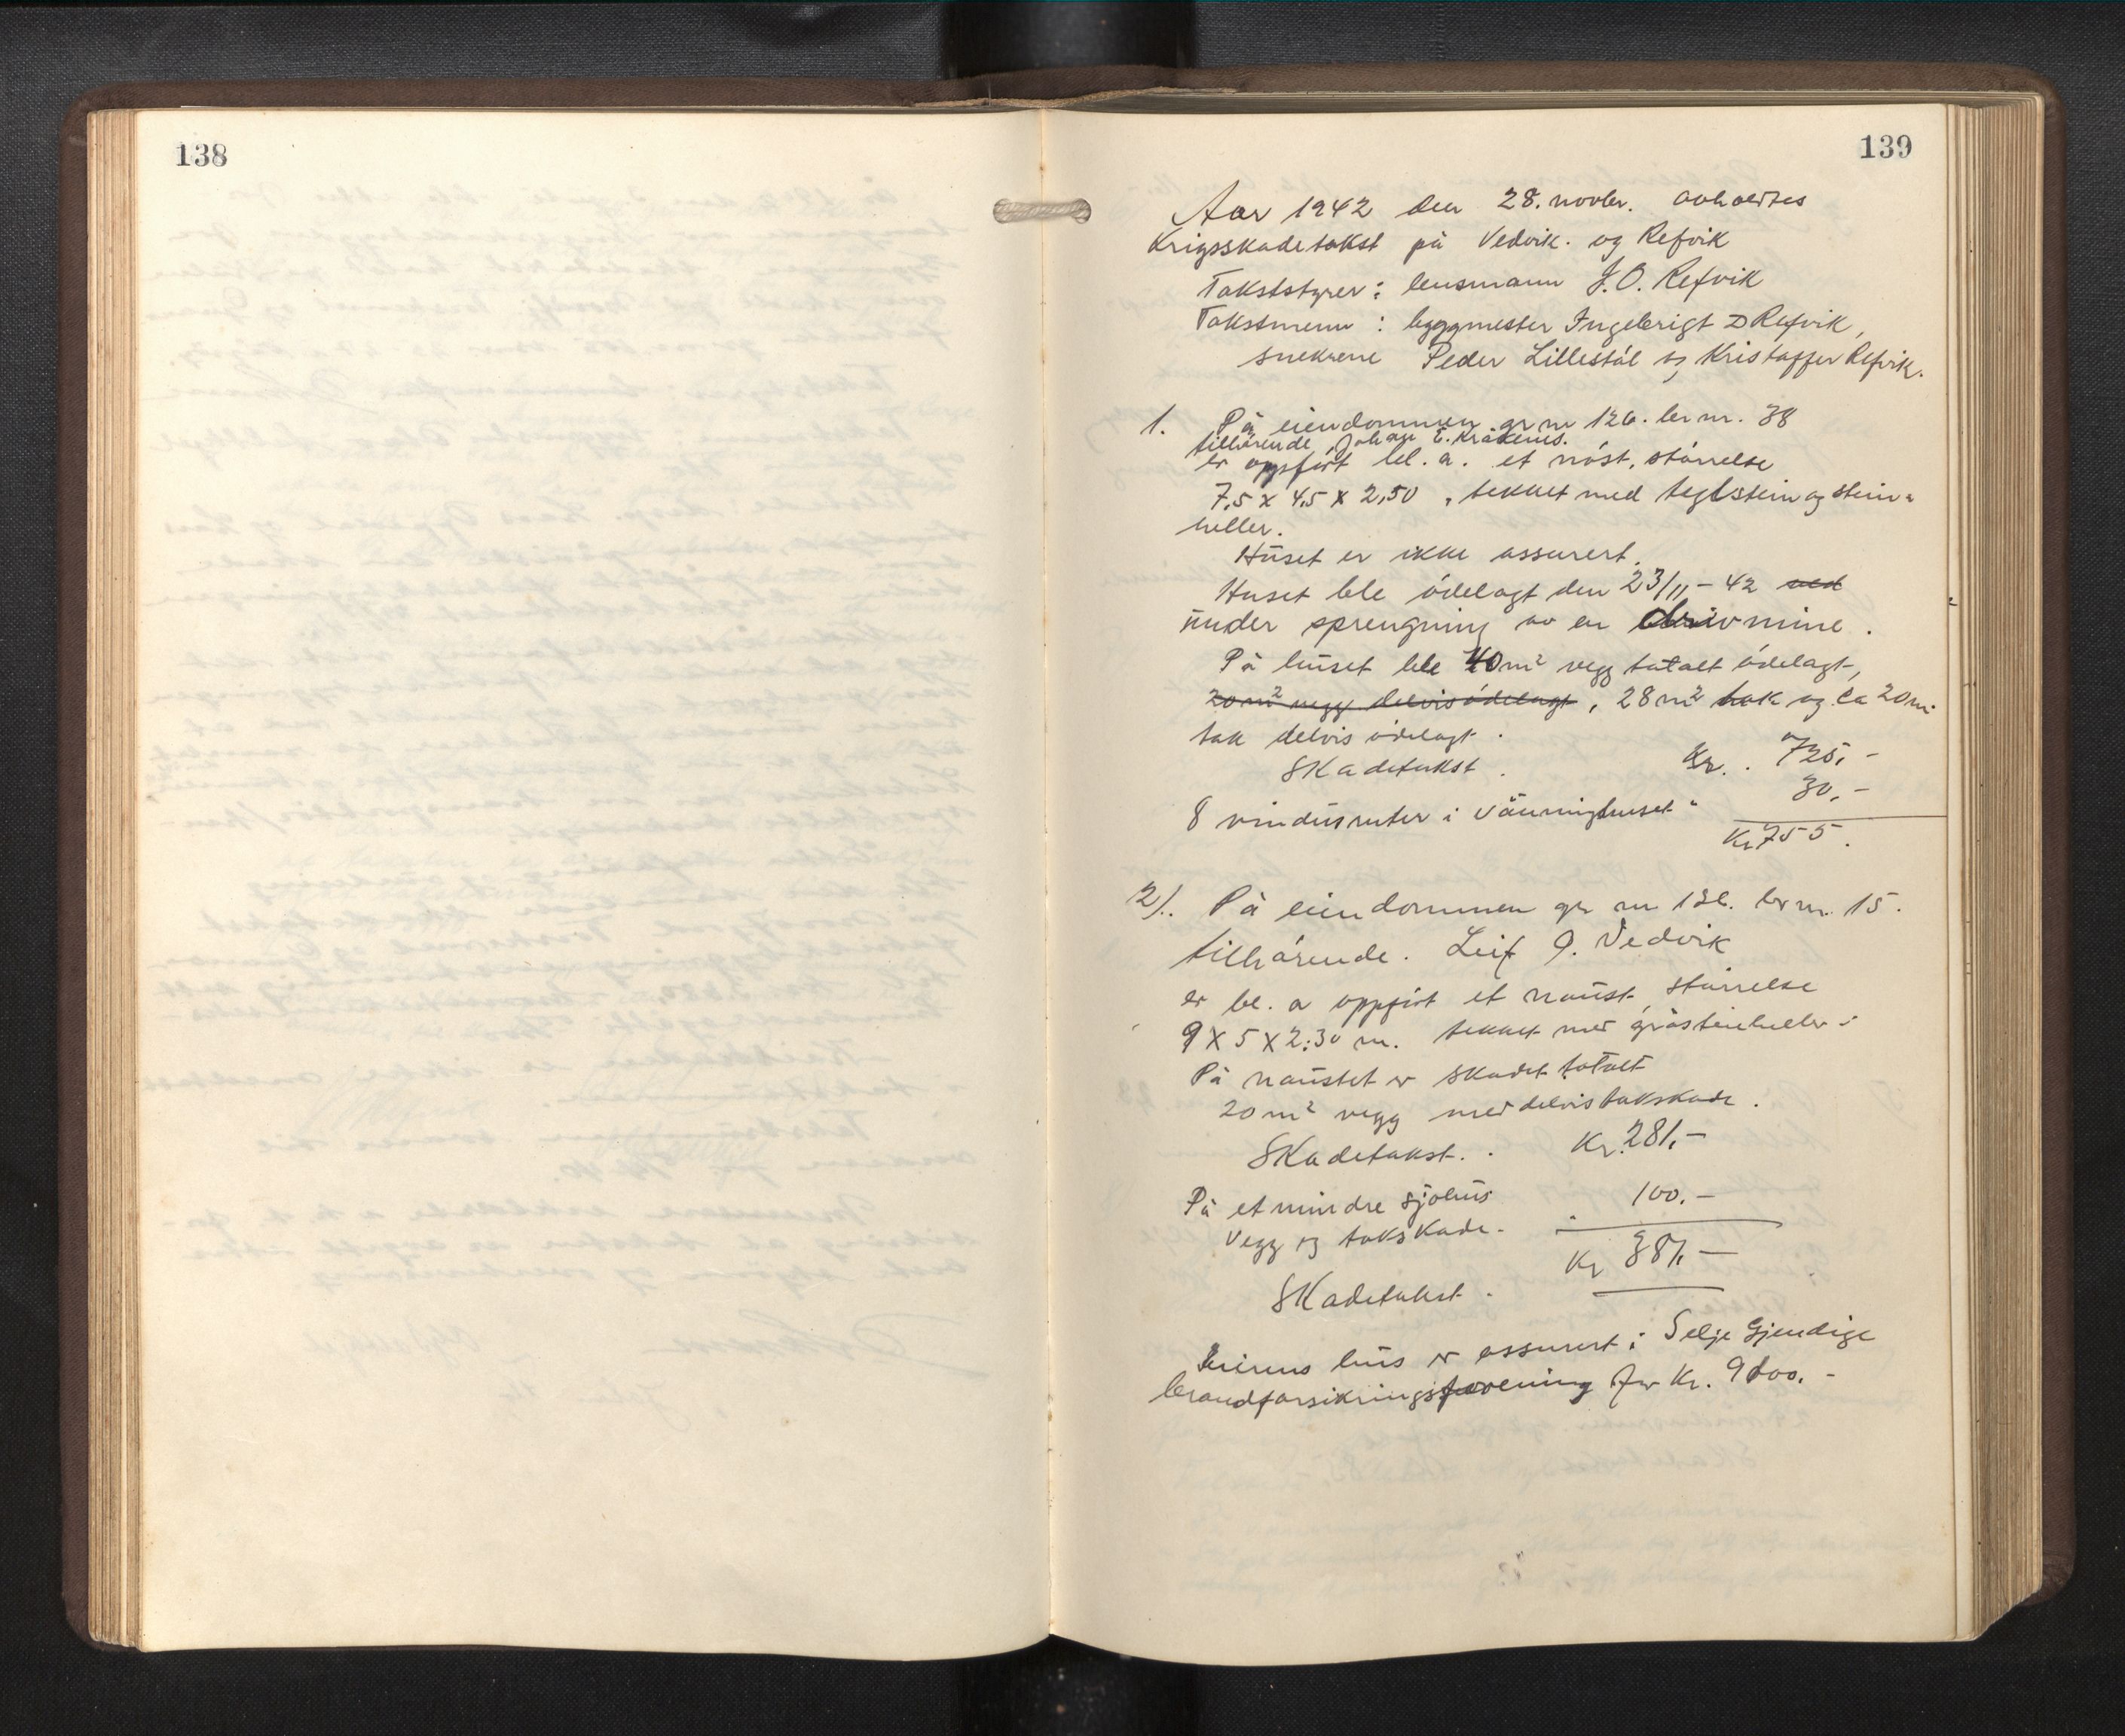 138
139
Aar 1942 den 28. novbr. avholdtes
Krigsskadetakst på Vedvik. og Refvik
Takststyrer: lensmann J. O. Refvik
Takstmenn: byggmester Ingebrigt D Refvik,
snekrene Peder Lillestøl og Kristoffer Refvik.
1. På eiendommen gr nr 126. br nr. 38
tilhörende, Johan E. Kråkenes.
er oppfört bl. a. et nöst, störrelse
7,5 x 4,5 x 2,50, tekket med teglstein og stein=
heller.
Huset er ikke assurert.
Huset ble ödelagt den 23/11-42 ved
under sprengning av en drivmine.
På huset ble 40 m² vegg totalt ödelagt,
20 m² vegg delvis ödelagt, 28 m² tak og ca 20 m²
tak delvis ödelagt.
Skadetakst. Kr. 725,-
8 vindusruter i våningshuset " 30,-
Kr 755.
2). På eiendommen gr nr 126. br nr. 15.
tilhörende. Leif J. Vedvik
er bl. a oppfört et naust, störrelse
9 x 5 x 2:30 m. tekket med gråsteinheller.
På naustet er skadet totalt
20 m² vegg med delvis takskade.
Skadetakst. Kr. 281,-
På et mindre sjöhus 100.-
Vegg og takskade.
Skadetakst. Kr 381,-
hus er assurert i Selje Gjendige
brandforsikringsforening for Kr.